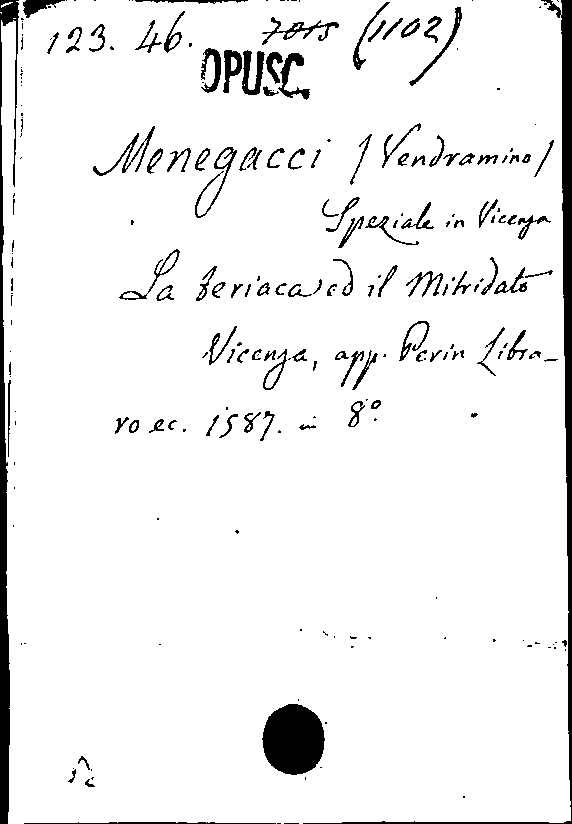 123. 46. 7015 (1102)
OPUSC.
Menegacci / Vendramino /
Speziale in Vicenza
La teriaca ed il Mitridato
Vicenza, app. Perin Libra-
ro ec. 1587. in 8°.